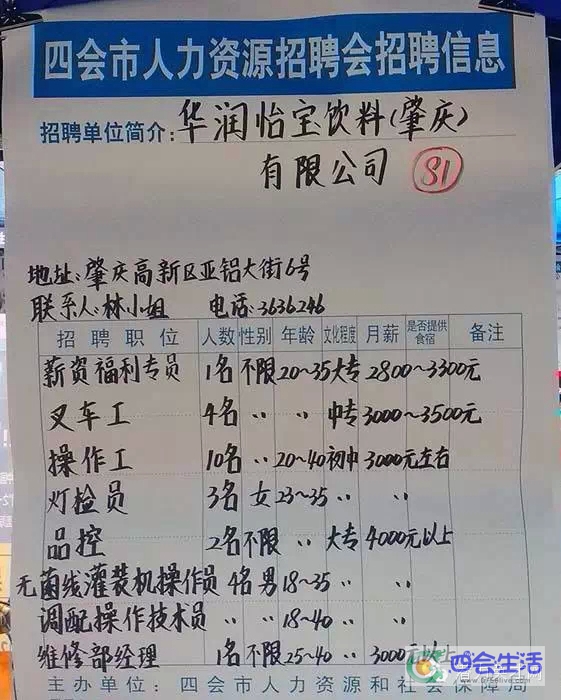 四会市人力资源招聘会招聘信息
招聘单位简介:华润怡宝饮料(肇庆)
有限公司 81
地址:肇庆高新区亚铝大街6号
联系人:林小姐 电话:3636246
招聘职位 人数 性别 年龄 文化程度 月薪 是否提供食宿 备注
薪资福利专员 1名 不限 20~35 大专 2800~3300元
叉车工 4名 〃 〃 中专 3000~3500元
操作工 10名 〃 20~40 初中 3000元左右
灯检员 3名 女 23~35 〃 〃
品控 2名 不限 〃 大专 4000元以上
无菌线灌装机操作员 4名 男 18~35 〃 〃
调配操作技术员 〃 〃 18~40 〃 〃
维修部经理 1名 不限 25~40 〃 3000元以上
主办单位:四会市人力资源和社会保障局
四会生活